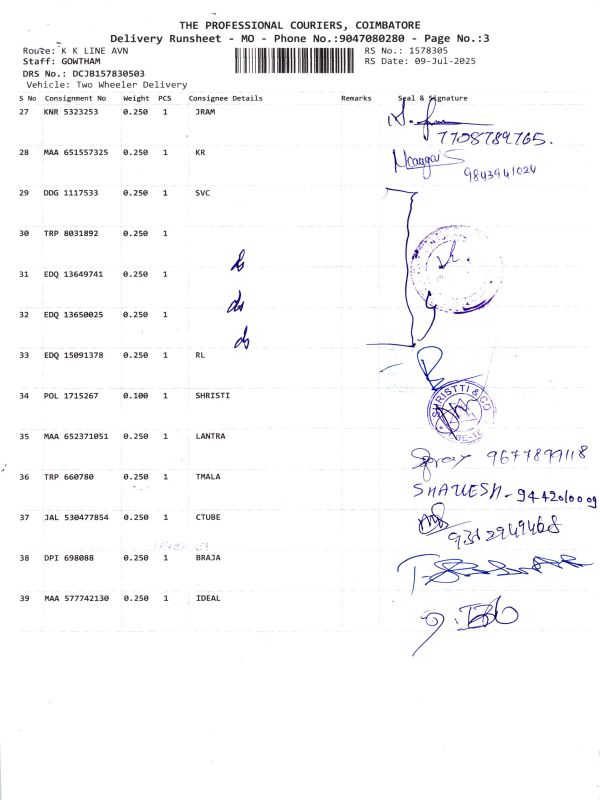 THE PROFESSIONAL COURIERS, COIMBATORE
Delivery Runsheet - MO - Phone No.:9047080280 - Page No.:3
Route: K K LINE AVN RS No.: 1578305
Staff: GOWTHAM RS Date: 09-Jul-2025
DRS No.: DCJB157830503
Vehicle: Two Wheeler Delivery
S No Consignment No Weight PCS Consignee Details Remarks Seal & Signature
27 KNR 5323253 0.250 1 JRAM
7708789765.
28 MAA 651557325 0.250 1 KR
9843941024
29 DDG 1117533 0.250 1 SVC
30 TRP 8031892 0.250 1
31 EDQ 13649741 0.250 1
32 EDQ 13650025 0.250 1
33 EDQ 15091378 0.250 1 RL
34 POL 1715267 0.100 1 SHRISTI
SHRISTTI & CO
35 MAA 652371051 0.250 1 LANTRA
9677899118
36 TRP 660780 0.250 1 TMALA
SHAILESH - 9442010009
37 JAL 530477854 0.250 1 CTUBE
9312949468
38 DPI 698088 0.250 1 BRAJA
39 MAA 577742130 0.250 1 IDEAL